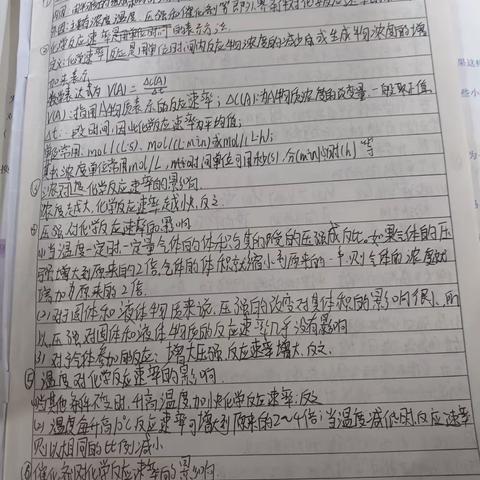 外因:主要有浓度、温度、压强和催化剂等
②化学反应速率的表示方法
定义:化学速率反应是用单位时间内反应物浓度的减少或生成物浓度的增
加来表示
数学表达式为 V(A)=Δc(A)/Δt
V(A):指用A物质表示的反应速率;Δc(A):为A物质浓度的改变量,一般取正值
Δt:一段时间,因此化学反应速率为平均值;
单位常用:mol/(L·s)、mol/(L·min)或mol/(L·h);
其中浓度单位常用mol/L,时间单位可用秒(s),分(min),小时(h)等
③浓对化学反应速率的影响
浓度越大,化学反应速率越快,反之
④压强对化学反应速率的影响
(1)当温度一定时一定量气体的体积与其所受的压强成反比。如果气体的压
强增大到原来的2倍,气体的体积就缩小到原来的一半,则气体的浓度就
增加为原来的2倍.
(2)对于固体和液体物质来说,压强的改变对其体积的影响很小,所
以压强对固体和液体物质的反应速率几乎没有影响
(3)对气体参加的反应:增大压强,反应速率增大,反之.
⑤温度对化学反应速率的影响
(1)当其他条件不变时,升高温度,加快化学反应速率;反之
(2)温度每升高10℃反应速率可增大到原来的2~4倍;当温度减低时,反应速率
则以相同的比例减小.
⑥催化剂对化学反应速率的影响.
果这样
些小
换